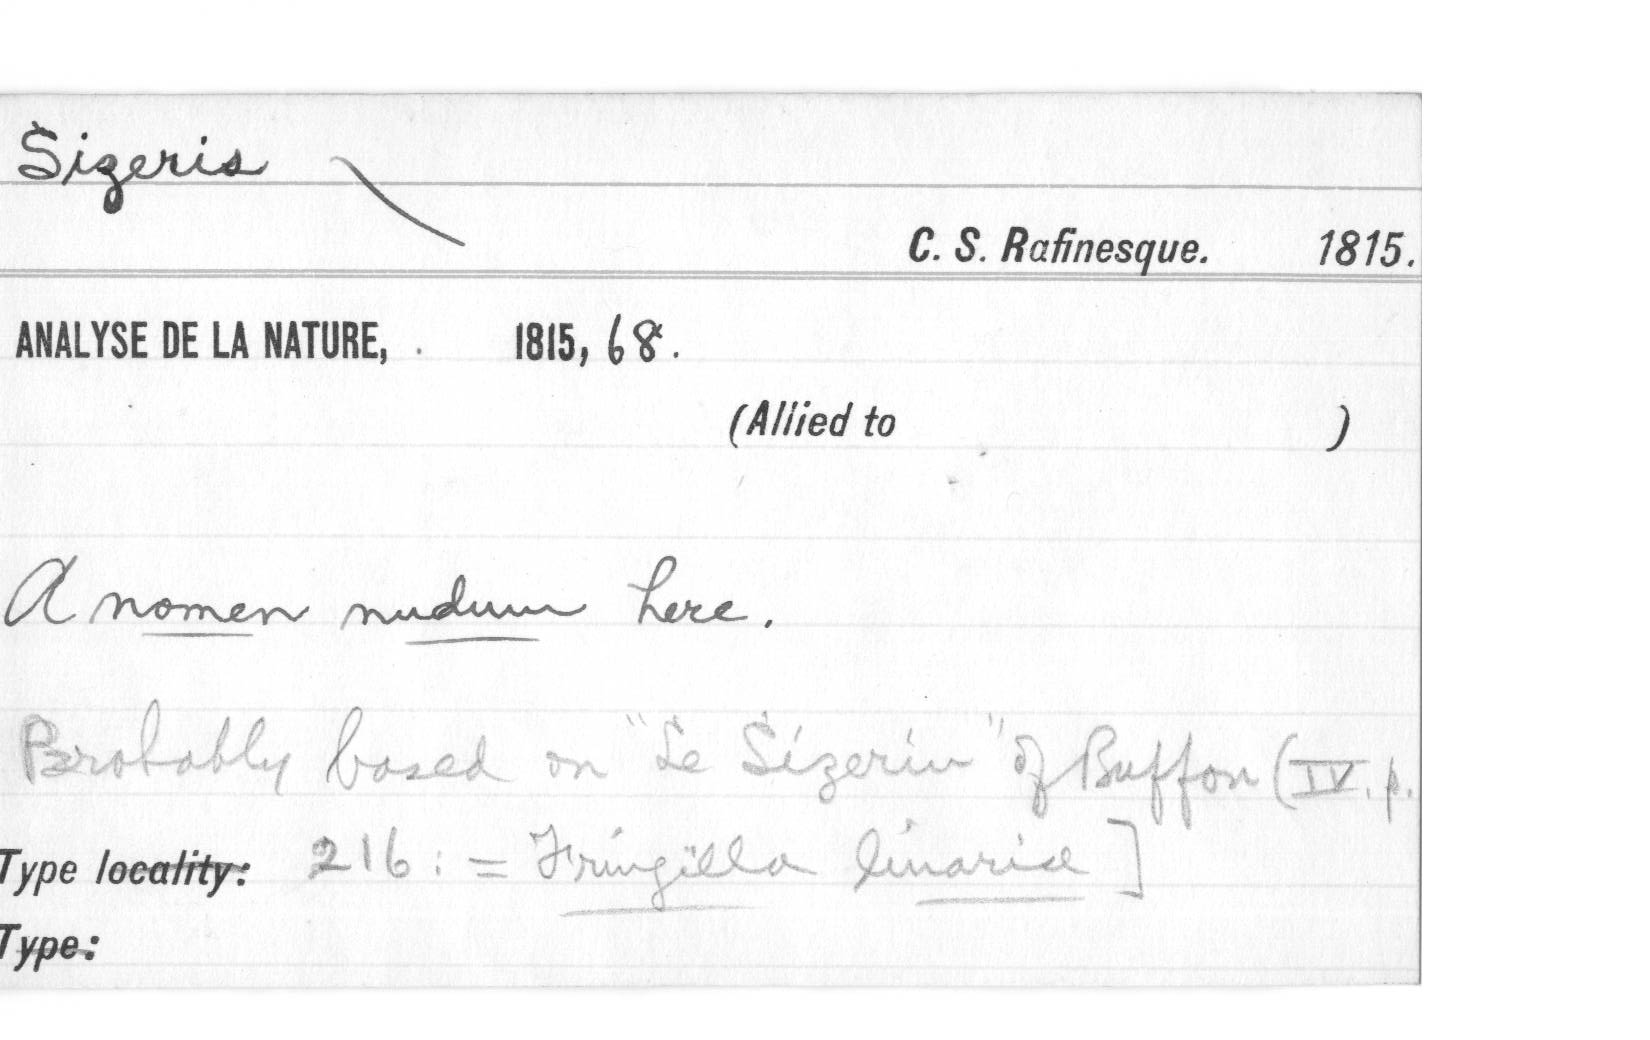 Sizeris
C. S. Rafinesque. 1815.
ANALYSE DE LA NATURE, 1815, 68.
(Allied to )
A nomen nudum here.
Probably based on "Le Sizerin" of Buffon (IV. p.
Type locality: 216: = Fringilla linaria ]
Type: